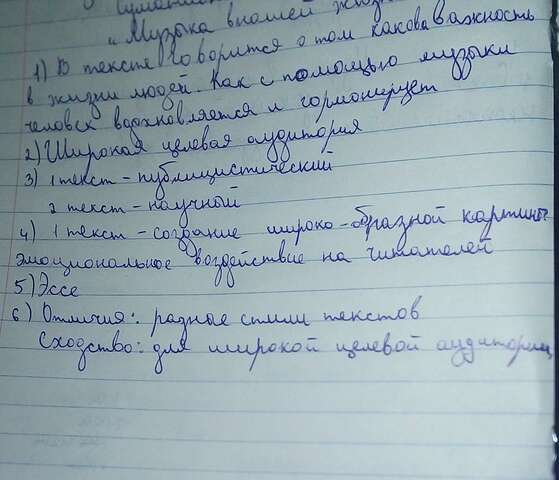 "Музыка в нашей жизн
1) В тексте говорится о том какова важность
в жизни людей. Как с помощью музыки
человек вдохновляется и гормонирует
2) Широкая целевая аудитория
3) 1 текст - публицистический
2 текст - научный
4) 1 текст - создание широко-образной картины
эмоциональное воздействие на читателей
5) Эссе
6) Отличия: разные стили текстов
Сходство: для широкой целевой аудитории